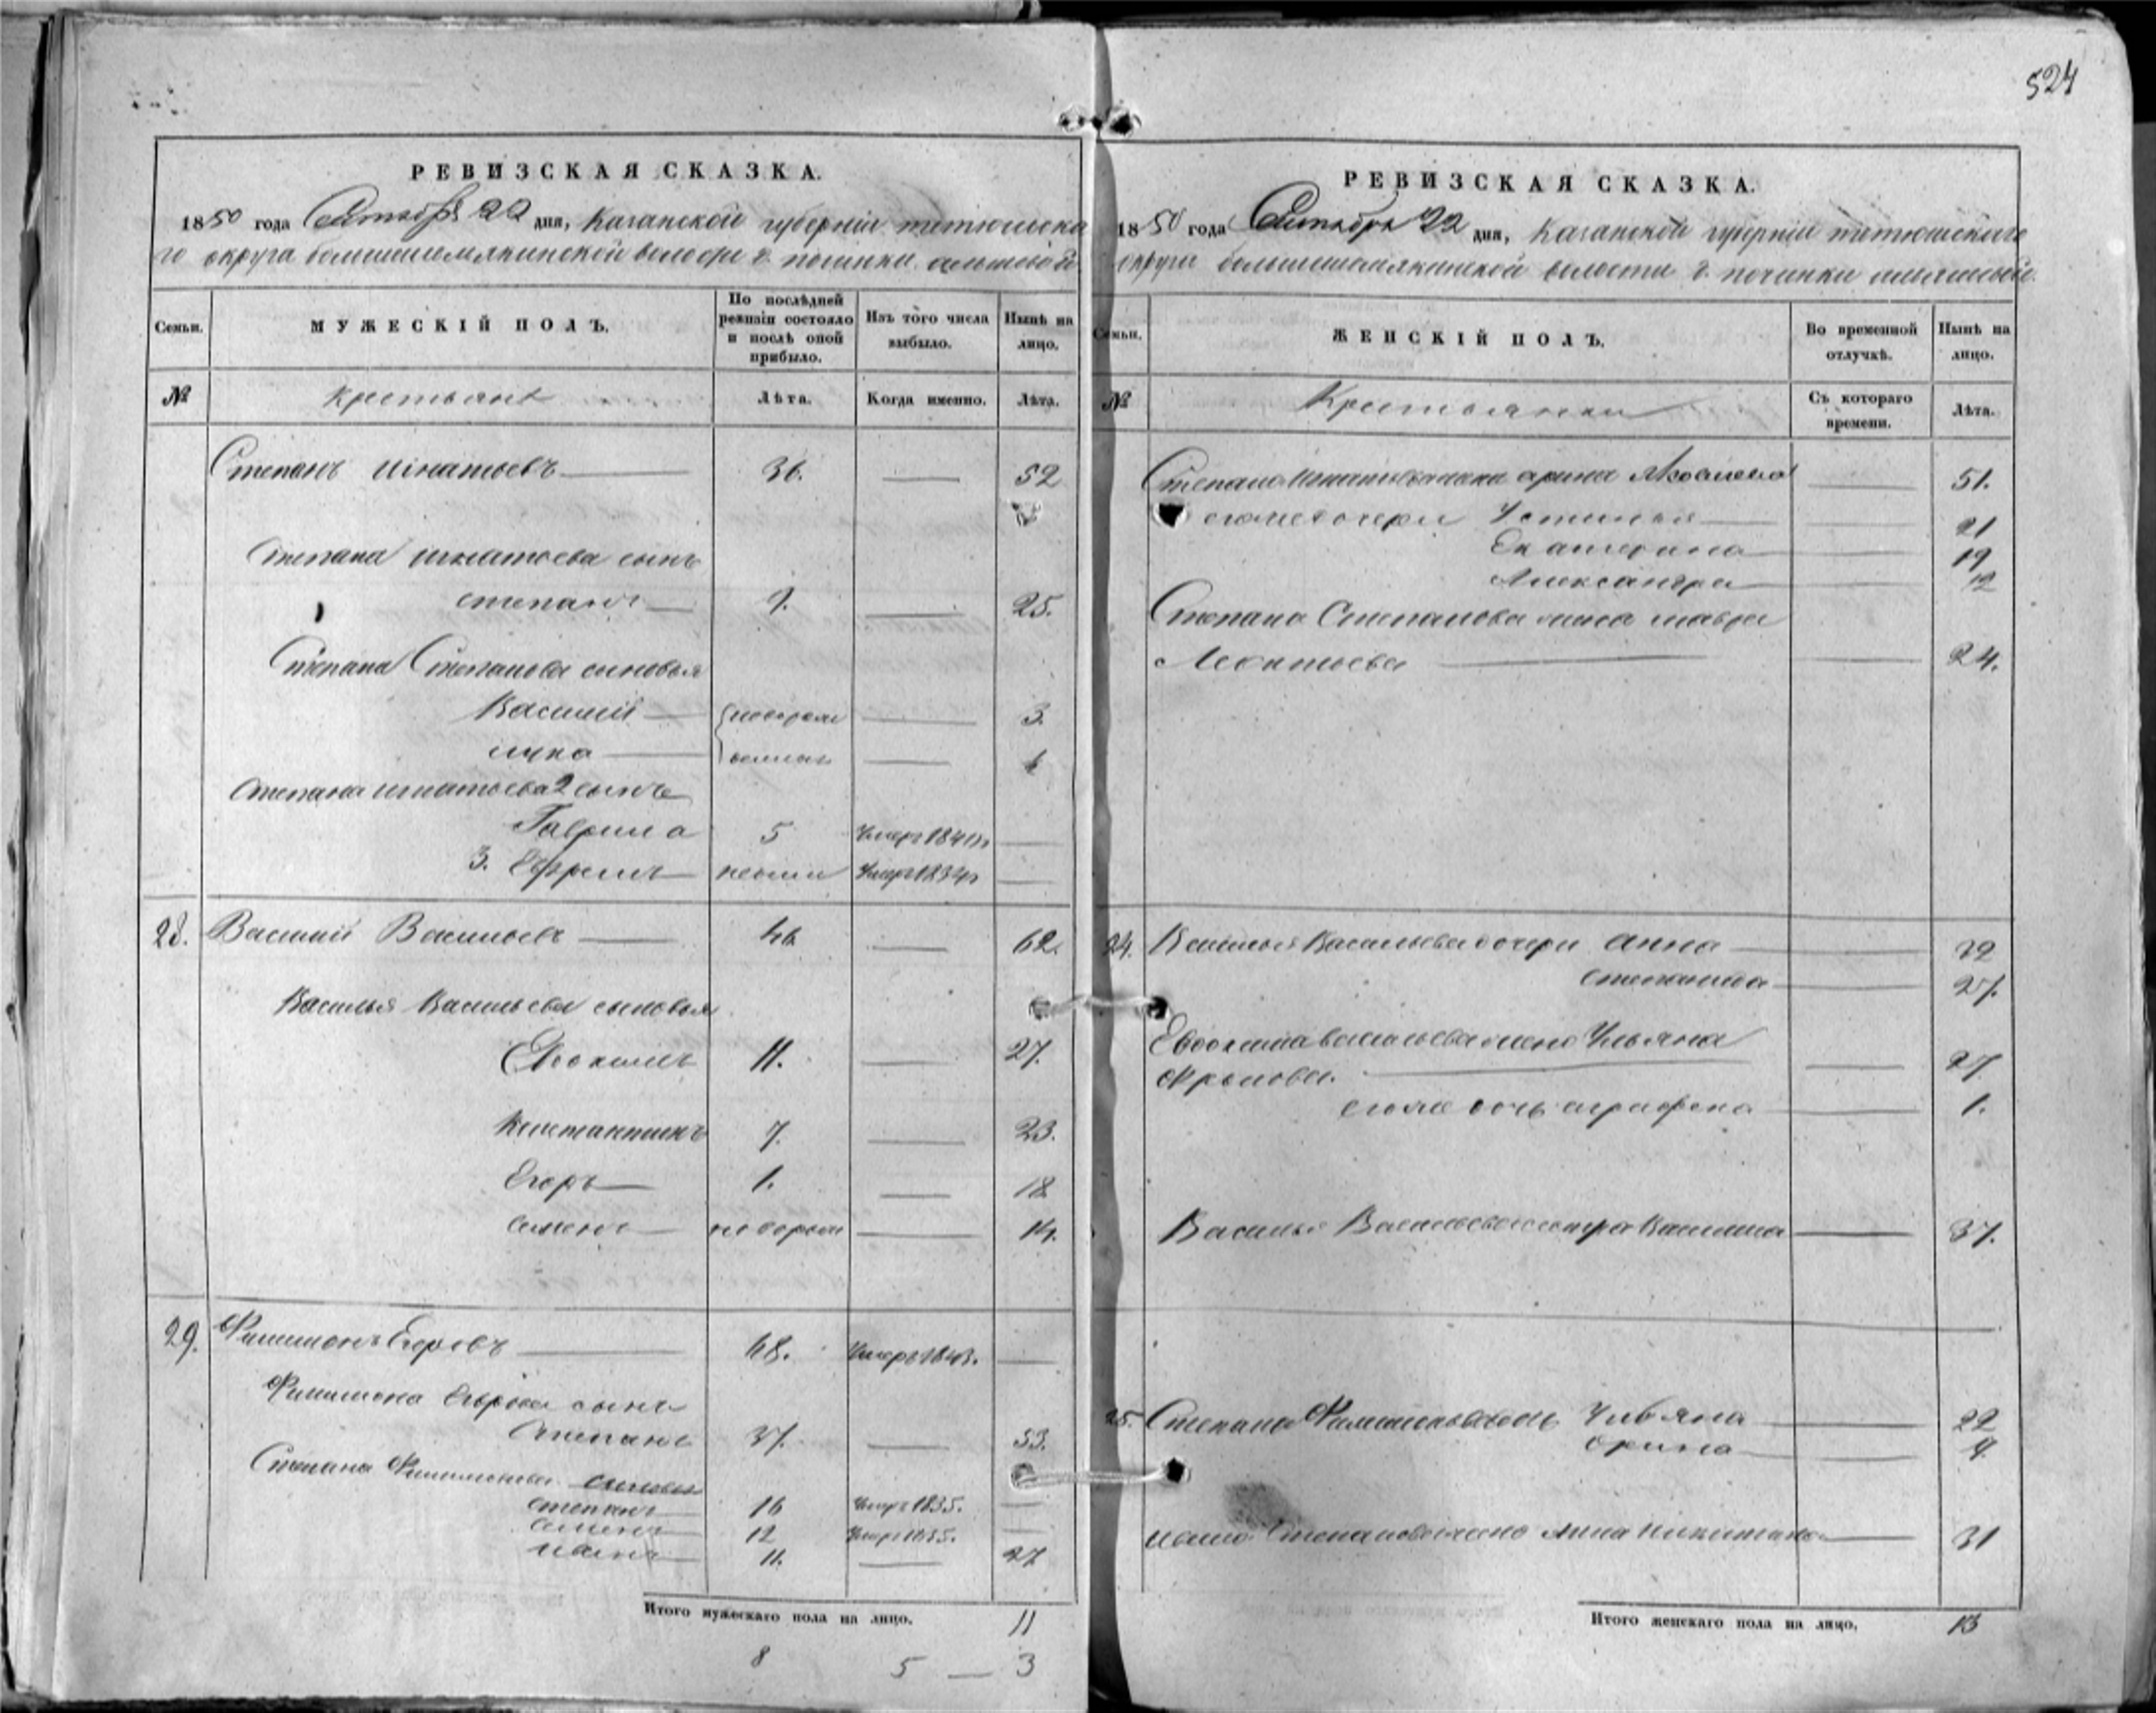 524
РЕВИЗСКАЯ СКАЗКА.
1850 года Октября 22 дня, Казанской губерніи тетюшска
го округа большешемякинской волости д. починки
Семьи.
МУЖЕСКІЙ ПОЛЪ.
По послѣдней ревизіи состояло и послѣ оной прибыло.
Изъ того числа выбыло.
Нынѣ на лицо.
№
Крестьяне
Лѣта.
Когда именно.
Лѣта.
Степанъ Игнатьевъ 36. 52
Степана Игнатьева сынъ
степанъ 9. 25.
Степана Степанова сыновья
Василий новорож 3.
лука 1
Степана игнатьева 2 сынъ
Гаврила 5 Умеръ 1841
3. Ефремъ Умеръ 1834
28. Василий Васильевъ 46 62.
Василья Васильева сыновья
Евдокимъ 11. 27.
Константинъ 7. 23.
Егоръ 1. 18
Семенъ новорож 14.
29. Филимонъ Егоровъ 68. Умеръ 1843.
Филимона Егорова сынъ
Степанъ 37. 53.
Степана Филимонова сыновья
степанъ 16 Умеръ 1835.
Семенъ 12 Умеръ 1835.
Иванъ 11. 27
Итого мужескаго пола на лицо. 11
8 5 — 3
РЕВИЗСКАЯ СКАЗКА.
1850 года Октября 22 дня, Казанской губерніи тетюшскаго
округа большешемякинской волости д. починки
Семьи.
ЖЕНСКІЙ ПОЛЪ.
Во временной отлучкѣ.
Нынѣ на лицо.
№
Крестьянки
Съ котораго времени.
Лѣта.
Степана Игнатьева жена арина Яковлева 51.
его же дочери Устинья 21
Екатерина 19
Александра 12
Степана Степанова жена мавра
Леонтьева 24.
24. Василья Васильева дочери анна 32
степанида 27.
Евдокима васильева жена Ульяна
Фролова. 27
его же дочь аграфена 1.
Василья Васильева сестра Василиса 37.
25. Степана Филимонова Ульяна 22
Орина
ивана Степанова жена Анна Никитина 31
Итого женскаго пола на лицо. 13